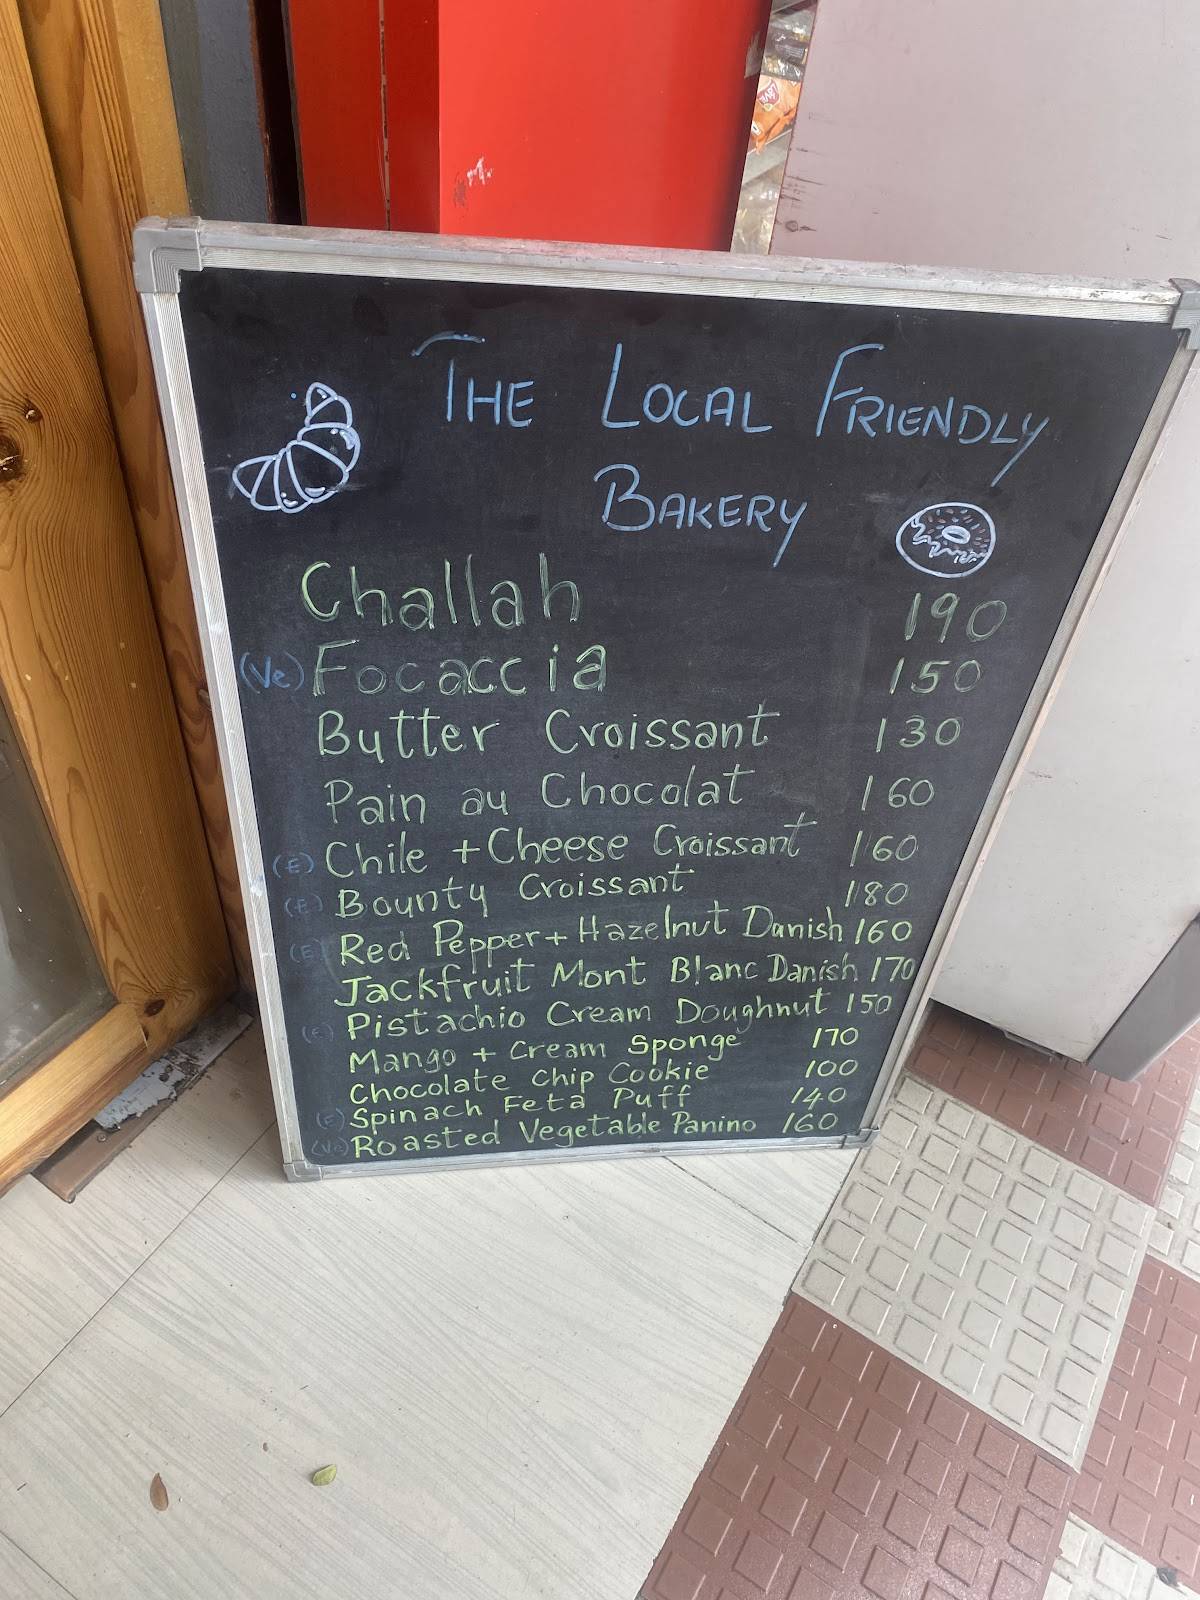 THE LOCAL FRIENDLY
BAKERY
Challah 190
(Ve) Focaccia 150
Butter Croissant 130
Pain au Chocolat 160
(E) Chile + Cheese Croissant 160
(E) Bounty Croissant 180
(E) Red Pepper + Hazelnut Danish 160
Jackfruit Mont Blanc Danish 170
(E) Pistachio Cream Doughnut 150
Mango + Cream Sponge 170
Chocolate Chip Cookie 100
(E) Spinach Feta Puff 140
(Ve) Roasted Vegetable Panino 160